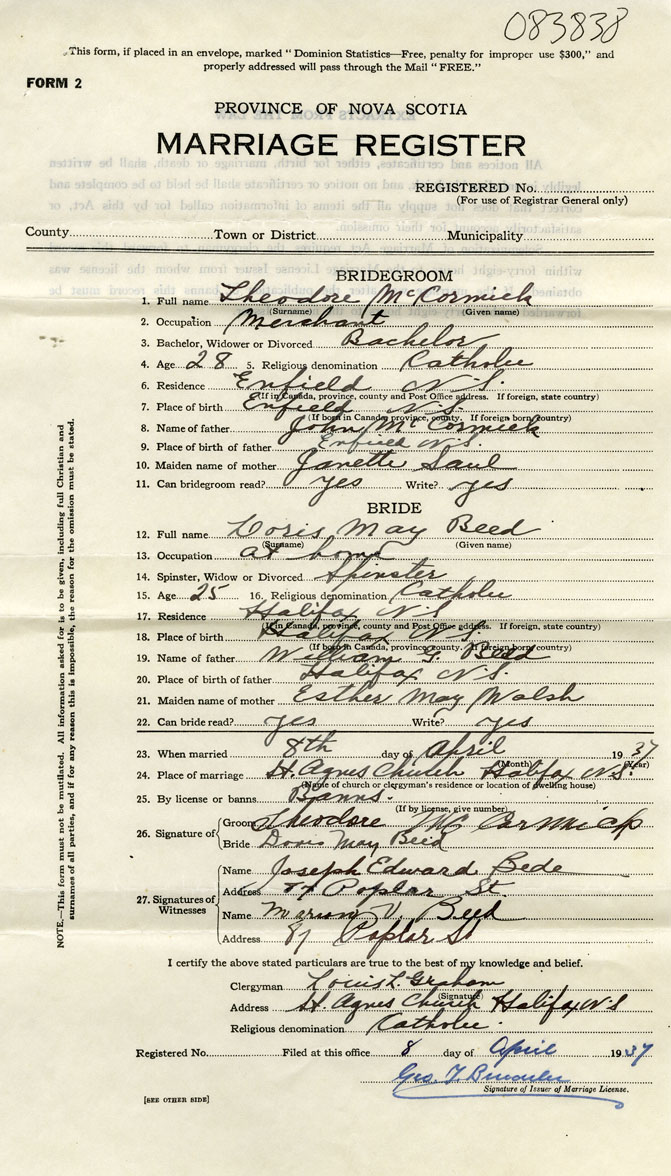 083838
This form, if placed in an envelope, marked " Dominion Statistics—Free, penalty for improper use $300," and
properly addressed will pass through the Mail " FREE."
FORM 2
PROVINCE OF NOVA SCOTIA
MARRIAGE REGISTER
REGISTERED No.
(For use of Registrar General only)
County Town or District Municipality
BRIDEGROOM
1. Full name Theodore McCormick
(Surname) (Given name)
2. Occupation Merchant
3. Bachelor, Widower or Divorced Bachelor
4. Age 28 5. Religious denomination Catholic
6. Residence Enfield N.S.
(If in Canada, province, county and Post Office address. If foreign, state country)
7. Place of birth Enfield N.S.
(If born in Canada, province, county. If foreign born, country)
8. Name of father John McCormick
9. Place of birth of father Enfield N.S.
10. Maiden name of mother Janette Saul
11. Can bridegroom read? yes Write? yes
BRIDE
12. Full name Doris May Beed
(Surname) (Given name)
13. Occupation at home
14. Spinster, Widow or Divorced Spinster
15. Age 25 16. Religious denomination Catholic
17. Residence Halifax N.S
(If in Canada, province, county and Post Office address. If foreign, state country)
18. Place of birth Halifax N.S.
(If born in Canada, province, county. If foreign born, country)
19. Name of father William G. Bedd
20. Place of birth of father Halifax N.S.
21. Maiden name of mother Esther May Walsh
22. Can bride read? yes Write? yes
23. When married 8th day of April 1937
(Month) (Year)
24. Place of marriage St. Agnes Church Halifax N.S.
(Name of church or clergyman's residence or location of dwelling house)
25. By license or banns Banns.
(If by license, give number)
26. Signature of
Groom Theodore McCormick
Bride Doris May Beed
27. Signatures of Witnesses
Name Joseph Edward Bede
Address 87 Poplar St.
Name Marion V. Beed
Address 87 Poplar St
I certify the above stated particulars are true to the best of my knowledge and belief.
Clergyman Louis L. Graham
(Signature)
Address St. Agnes Church Halifax N.S
Religious denomination Catholic.
Registered No. Filed at this office 8 day of April 1937
Geo. T.
Signature of Issuer of Marriage License.
[SEE OTHER SIDE]
NOTE.—This form must not be mutilated. All information asked for is to be given, including full Christian and
surnames of all parties, and if for any reason this is impossible, the reason for the omission must be stated.